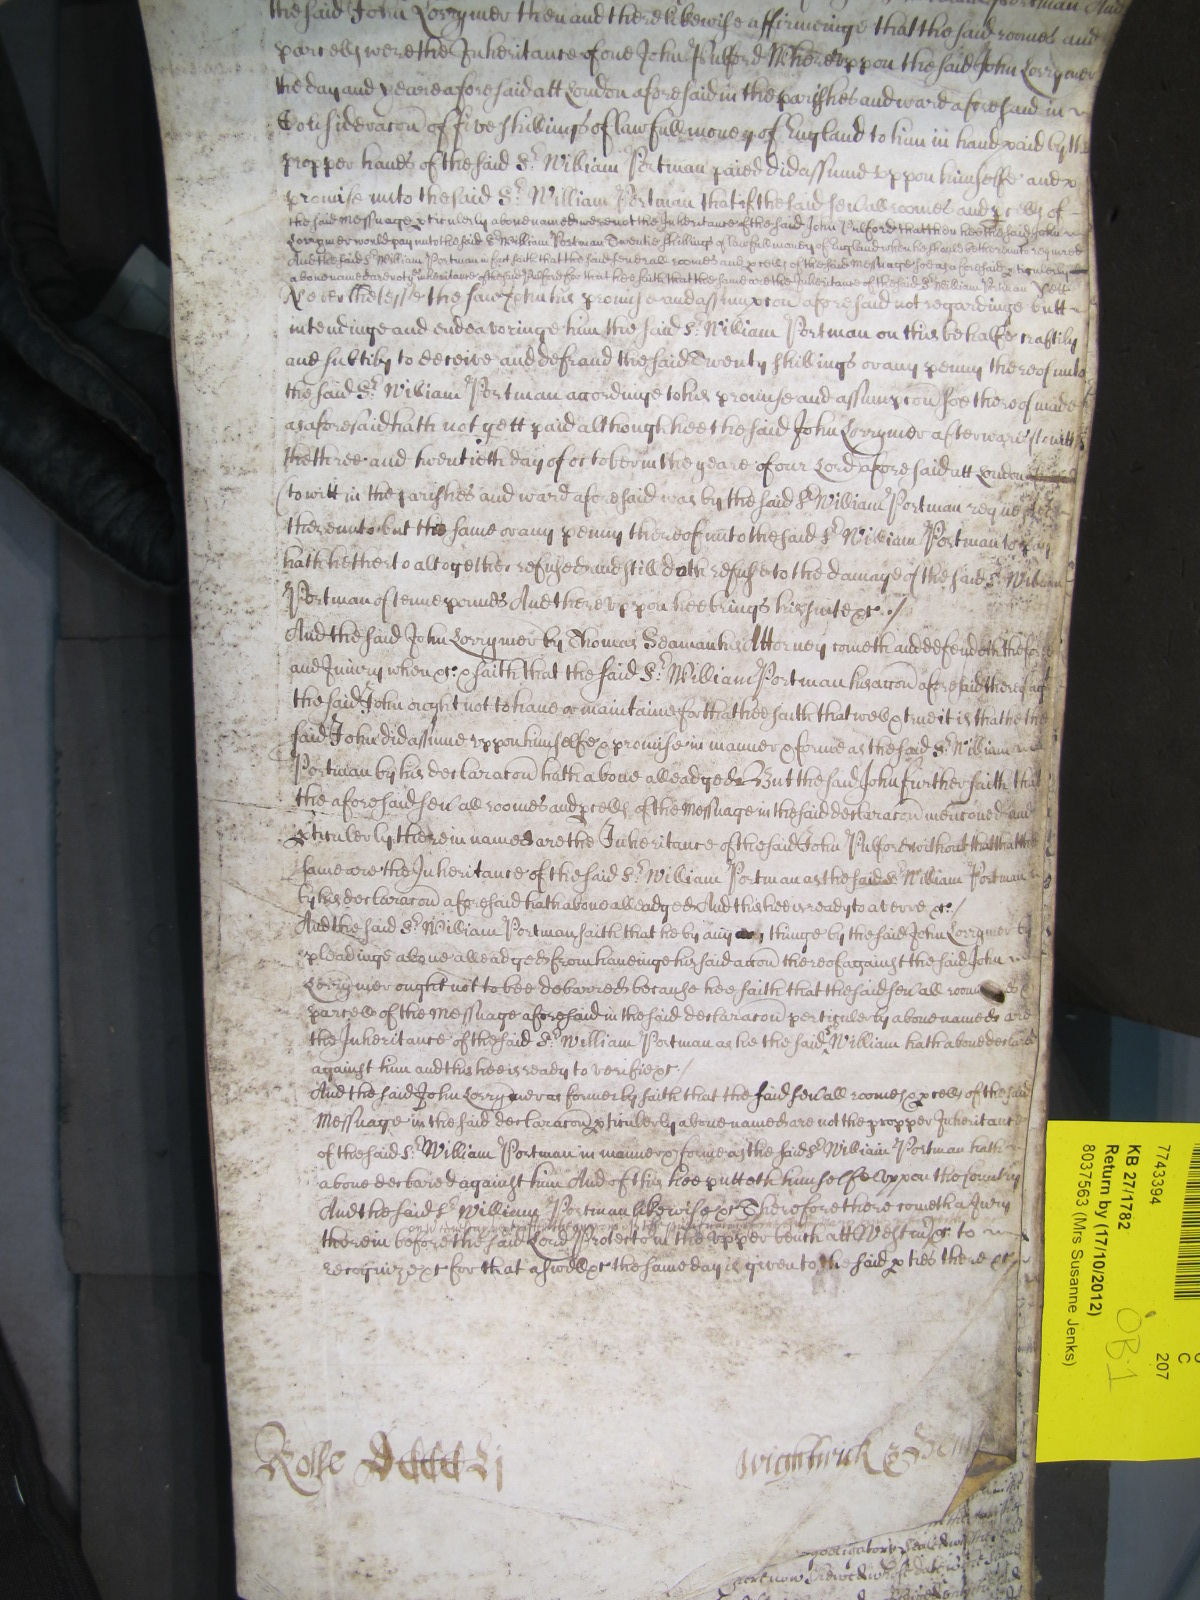 the said John Lorrymer then and there likewise affirmeinge that the said roomes and
parcells were the Inheritance of one John Pulford Wherevppon the said John Lorrymer
the day and yeare aforesaid att London aforesaid in the parishes and ward aforesaid in
Consideracon of five shillings of lawfull money of England to him in hand paid by the
propper hands of the said Sr William Portman paied did assume vppon himselfe and
promise unto the said Sr William Portman that if the said sevall roomes and pcells of
the said Messuage pticulerly above named were not the Inheritance of the said John Pulford that then hee the said John
Lorrymer would pay unto the said Sr William Portman Twentie shillings of lawfull money of England when he should bee therunto required
And the said Sr William Portman in fact saith that the said severall roomes and pcells of the said Messuage soe as aforesaid pticulerly
above named are not the inheritance of the said Pulford for that hee saith that the same are the Inheritance of the said Sr William Portman
Neverthelesse the said John his promise and assumpcon aforesaid not regardinge butt
intendinge and endeavoringe him the said Sr William Portman on this behalfe craftily
and subtily to deceive and defraud the said Twenty shillings or any penny thereof unto
the said Sr William Portman accordinge to his promise and assumpcon soe thereof made
as aforesaid hath not yett paid although hee the said John Lorrymer afterwards to witt
the three and twentieth day of October in the yeare of our Lord aforesaid att London
to witt in the parishes and ward aforesaid was by the said Sr William Portman
thereunto but the same or any penny thereof unto the said Sr William Portman to pay
hath hetherto altogether refused and still doth refuse to the damage of the said Sr William
Portman of tenne pounds And therevppon hee brings his suite &c. /
And the said John Lorrymer by Thomas Seaman his Attorney cometh and defendeth the force
and Iniury when &c. & saith that the said Sr William Portman his accon aforesaid thereof agt
the said John ought not to have or maintaine for that hee saith that well & true it is that he the
said John did assume vppon himselfe & promise in manner & forme as the said Sr William
Portman by his declaracon hath above alleadged But the said John further saith that
the aforesaid sevall roomes and pcells of the Messuage in the said declaracon menconed and
pticulerly therein named are the Inheritance of the said John Pulford without that that the
same are the Inheritance of the said Sr William Portman as the said Sr William Portman
by his declaracon aforesaid hath above alleadged And this hee is ready to averre &c. /
And the said Sr William Portman saith that he by any thinge by the said John Lorrymer by
pleadinge above alleadged from haveinge his said accon thereof against the said John
Lorrymer ought not to bee debarred because hee saith that the said sevall
parcells of the Messuage aforesaid in the said declaracon perticulerly above named are
the Inheritance of the said Sr William Portman as he the said Sr William hath above declared
against him and this hee is ready to verifie &c. /
And the said John Lorrymer as formerly saith that the said sevall roomes & pcells of the said
Messuage in the said declaracon pticulerly above named are not the propper Inheritance
of the said Sr William Portman in manner & forme as the said Sr William Portman hath
above declared against him And of this hee putteth himselfe vppon the Country
And the said Sr William Portman likewise &c Therefore there cometh a Iury
therein before the said Lord Protector in the vpper bench att Westmr &c. to
recognize &c for that aswell &c the same day is given to the said pties there &c
Rolfe
Wightwick &
obligatory
7743394
C
207
KB 27/1782
Return by (17/10/2012)
8037563 (Mrs Susanne Jenks)
OB1